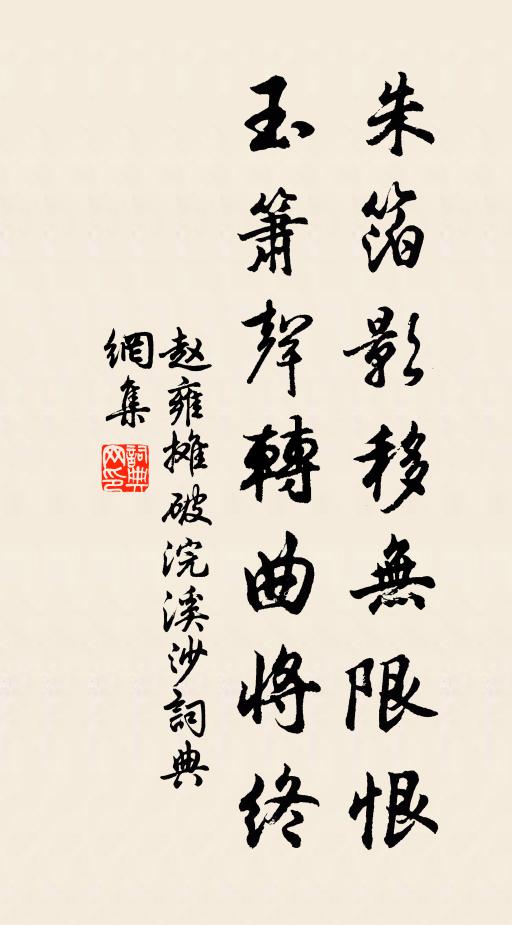 朱箔影移無限恨
玉簫聲轉曲將終
赵雍摊破浣溪沙詞典
網集
詞典网印